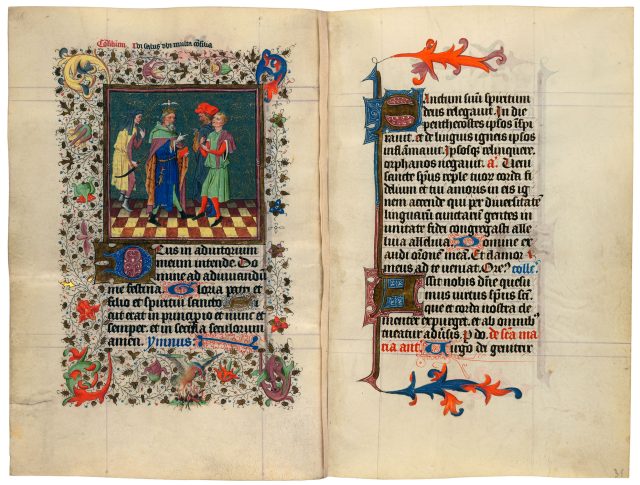 Cōsiliū. Ibi salus vbi multa cōsilia
Deus in adiutorium
meum intende. Do
mine ad adiuuandū
me festina. Gloria patri et
filio et spiritui sancto
cut erat in principio et nunc et
semper. et in secula seculorum
amen. Ymnus.
Sanctum suū spiritum
deus relegauit. In die
penthecostes ipsos īspi
rauit. et de linguis igneis ipsos
inflamauit. Ipsosqꝫ relinquere
orphanos negauit. a. Ueni
sancte sp̄us reple tuoꝝ corda fi
delium et tui amoris in eis ig
nem accende qui per diuersitatē
linguarū cunctarū gentes in
unitate fidei congregasti alle
luia alleluia. Domine ex
audi orōnem meā. Et clamor
meus ad te ueniat. Orem̄ꝰ colle
Assit nobis dn̄e quesu
mus uirtus sp̄us sanc
que et corda nostra cle
menter expurget. et ab omnibꝰ
tueatur aduersis. P do. de sc̄a ma
ria ant. Uirgo dei genitrix